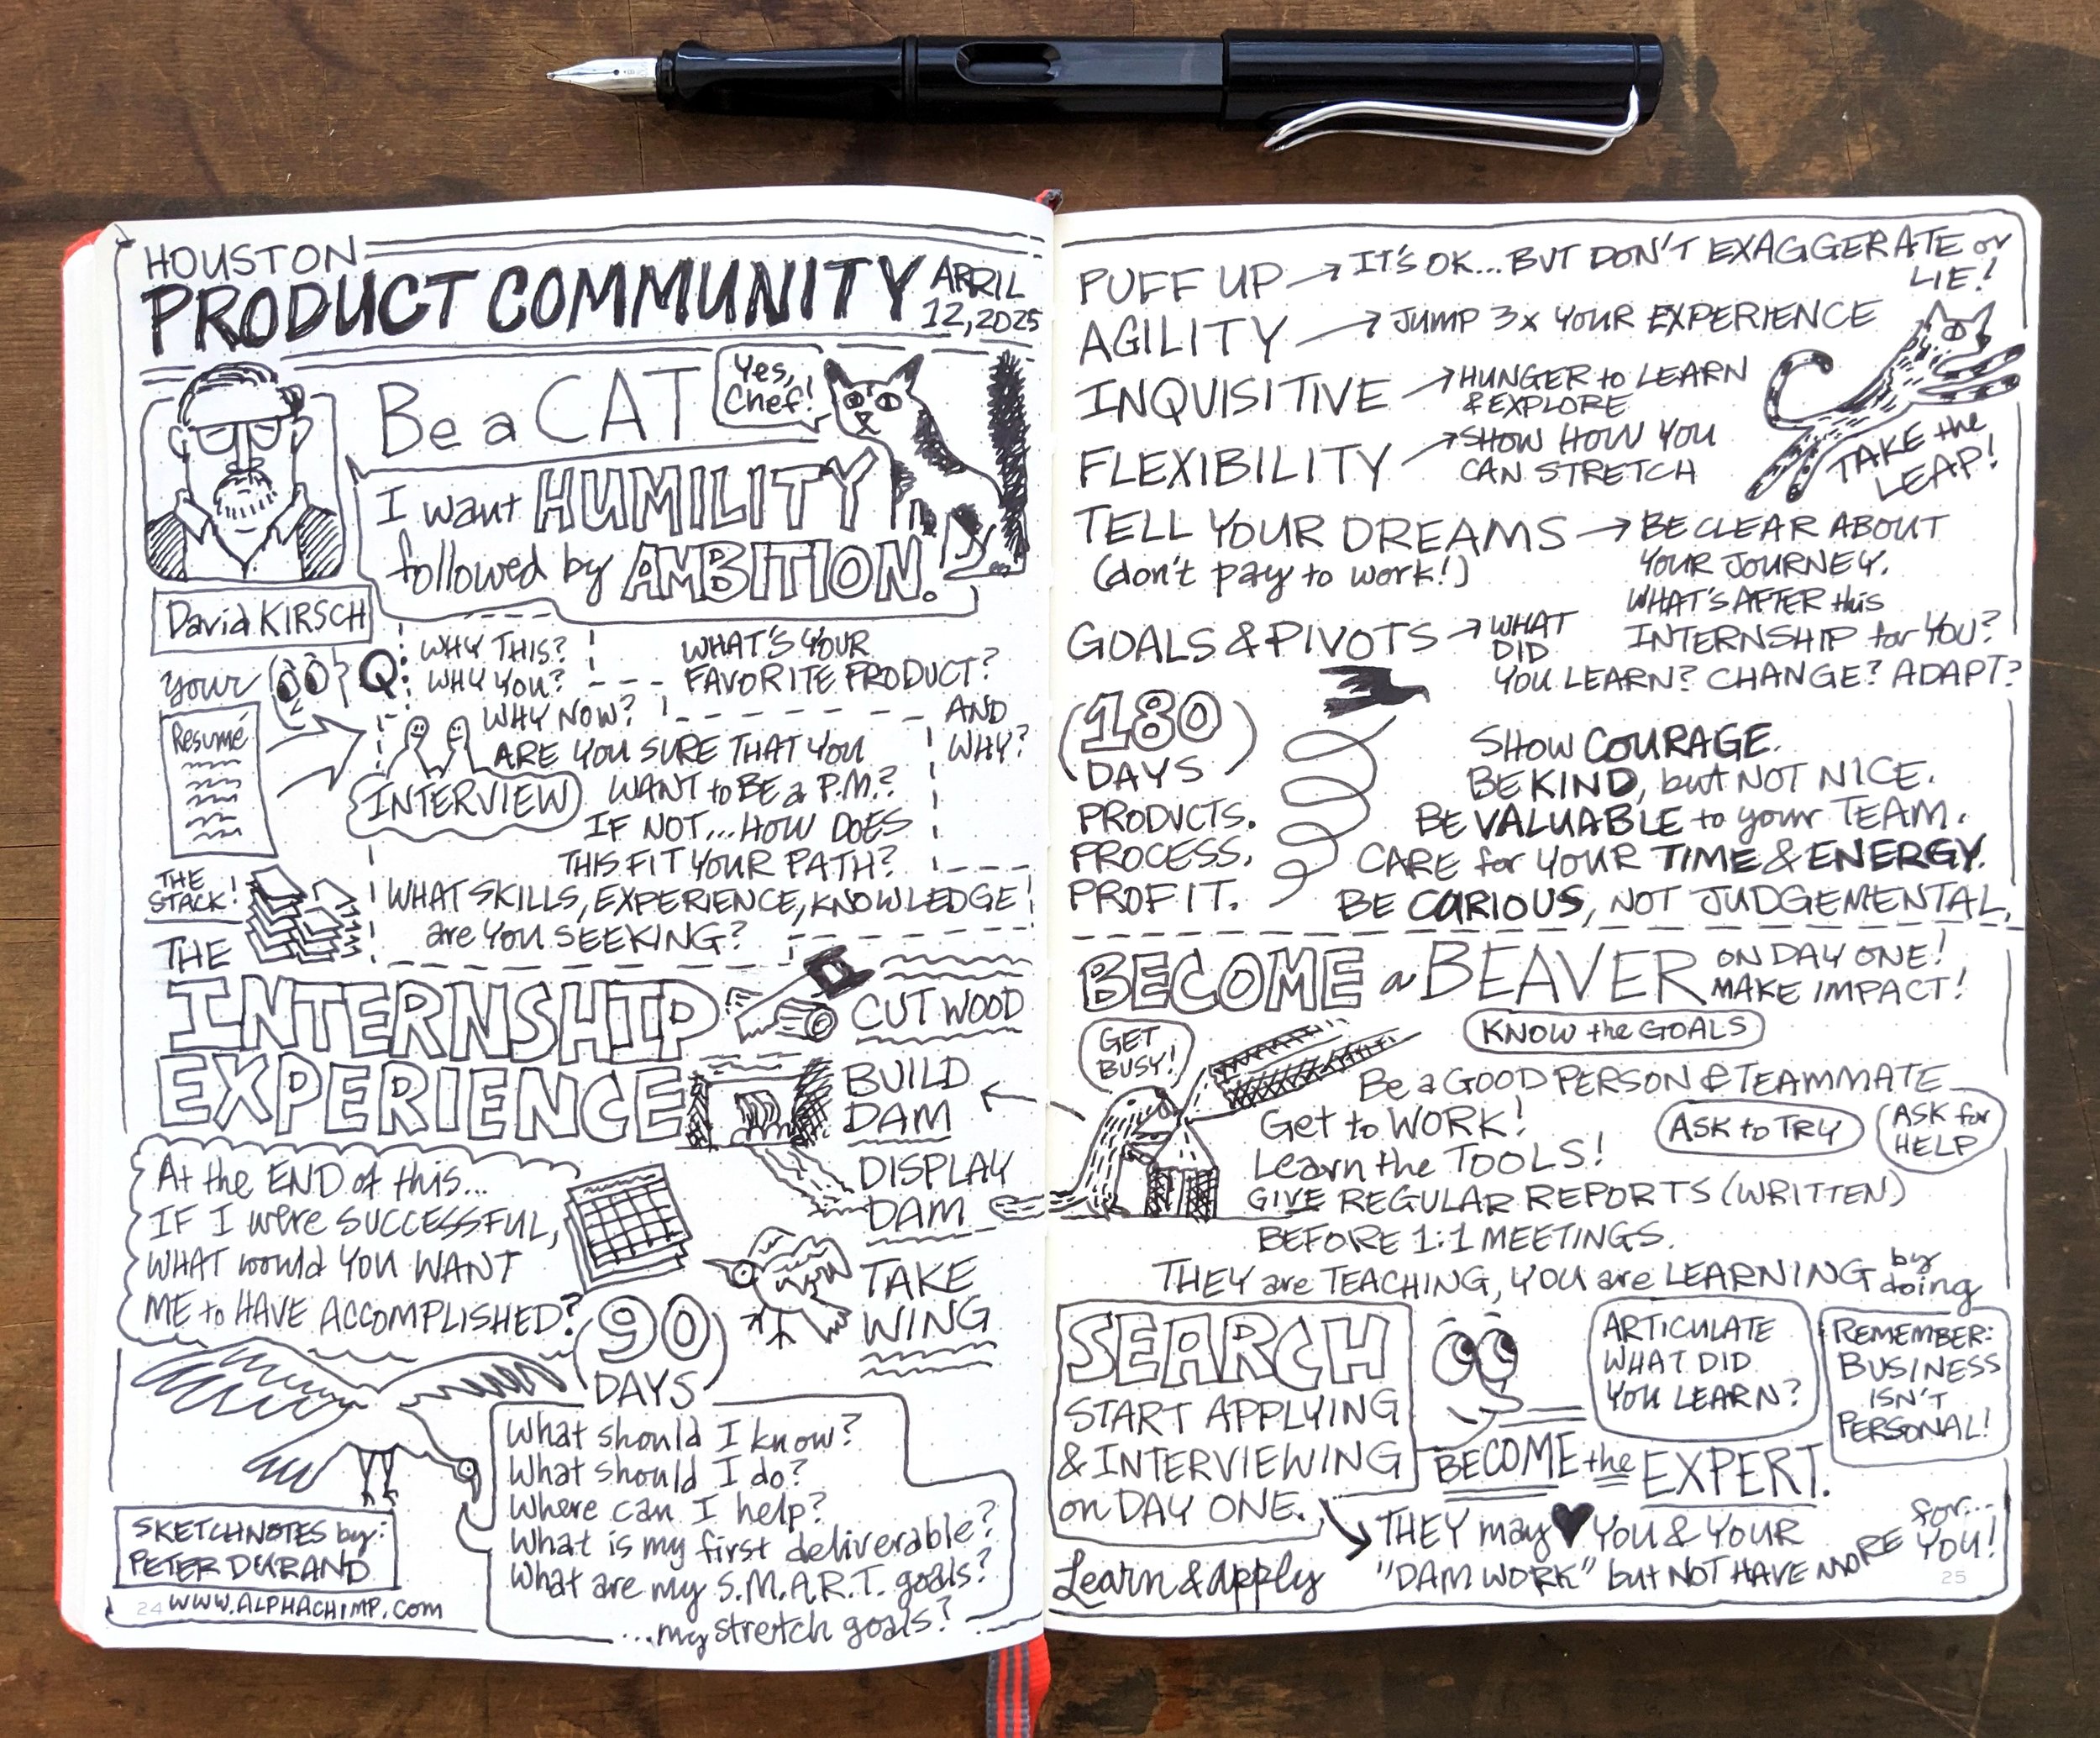 HOUSTON
PRODUCT COMMUNITY
APRIL
12, 2025
Be a CAT
Yes,
Chef!
I want HUMILITY
followed by AMBITION.
David KIRSCH
your
Q:
WHY THIS?
WHY YOU?
WHY NOW?
WHAT'S YOUR
FAVORITE PRODUCT?
AND
WHY?
Resumé
INTERVIEW
ARE YOU SURE THAT YOU
WANT to BE a P.M.?
IF NOT... HOW DOES
THIS FIT YOUR PATH?
THE
STACK!
WHAT SKILLS, EXPERIENCE, KNOWLEDGE
are YOU SEEKING?
THE
INTERNSHIP
EXPERIENCE
CUT WOOD
BUILD
DAM
DISPLAY
DAM
TAKE
WING
At the END of this...
IF I were SUCCESSFUL,
WHAT would YOU WANT
ME to HAVE ACCOMPLISHED?
90
DAYS
What should I know?
What should I do?
Where can I help?
What is my first deliverable?
What are my S.M.A.R.T. goals?
...my stretch goals?
SKETCHNOTES by:
PETER DURAND
24 WWW.ALPHACHIMP.com
PUFF UP → IT'S OK... BUT DON'T EXAGGERATE or
LIE!
AGILITY → JUMP 3x YOUR EXPERIENCE
INQUISITIVE → HUNGER to LEARN
& EXPLORE
FLEXIBILITY → SHOW HOW YOU
CAN STRETCH
TAKE the
LEAP!
TELL YOUR DREAMS → BE CLEAR ABOUT
(don't pay to work!)
YOUR JOURNEY.
WHAT'S AFTER this
INTERNSHIP for YOU?
GOALS & PIVOTS → WHAT
DID
YOU LEARN? CHANGE? ADAPT?
(180)
DAYS
PRODUCTS.
PROCESS.
PROFIT.
SHOW COURAGE.
BE KIND, but NOT NICE.
BE VALUABLE to your TEAM.
CARE for YOUR TIME & ENERGY.
BE CURIOUS, NOT JUDGEMENTAL.
BECOME a BEAVER
ON DAY ONE!
MAKE IMPACT!
GET
BUSY!
KNOW the GOALS
Be a GOOD PERSON & TEAMMATE
Get to WORK!
ASK to TRY
ASK for
HELP
Learn the TOOLS!
GIVE REGULAR REPORTS (WRITTEN)
BEFORE 1:1 MEETINGS.
THEY are TEACHING, YOU are LEARNING by
doing
SEARCH
START APPLYING
& INTERVIEWING
on DAY ONE.
ARTICULATE
WHAT DID
YOU LEARN?
REMEMBER:
BUSINESS
ISN'T
PERSONAL!
BECOME the EXPERT.
Learn & apply
THEY may ♥ YOU & YOUR
"DAM WORK" but NOT HAVE MORE for...
YOU!
25